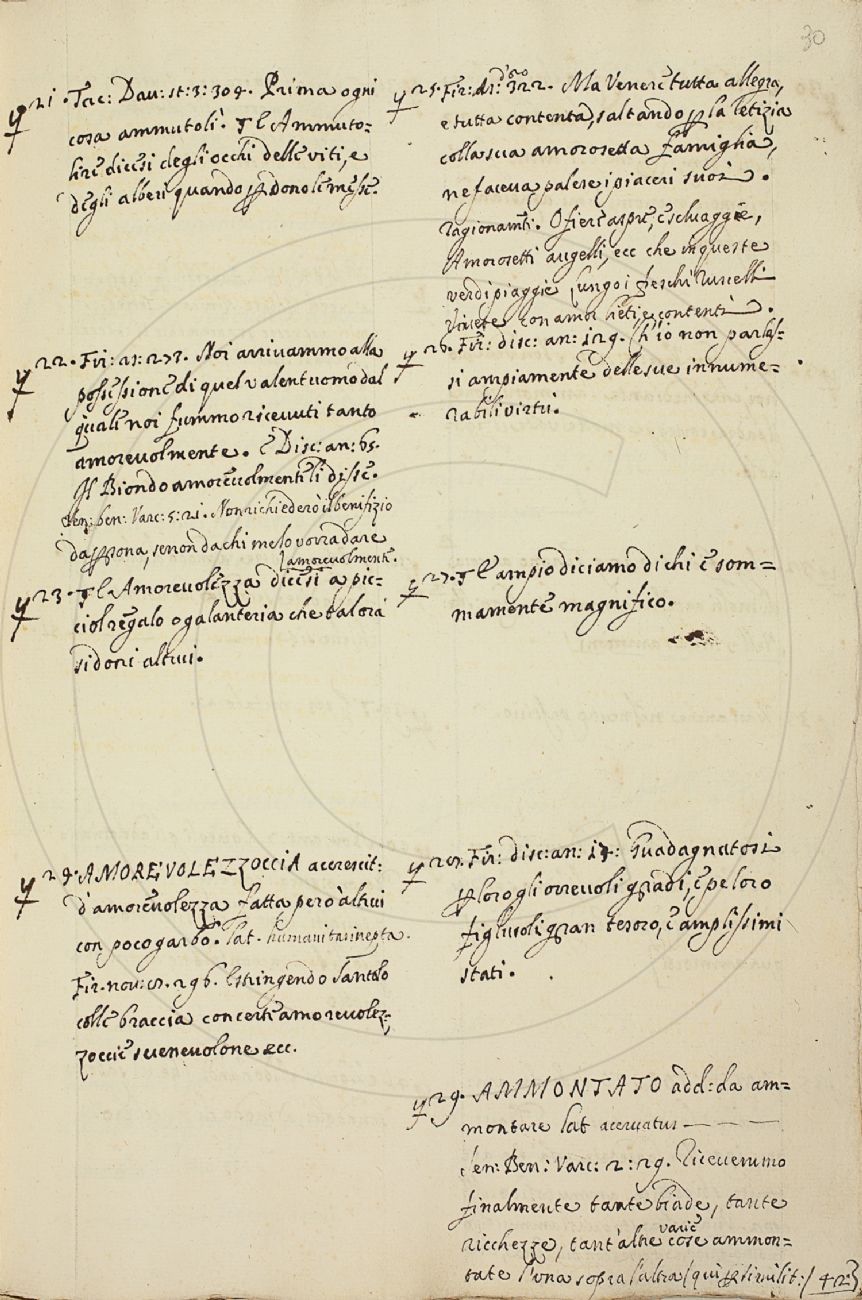 30
21. Tac: Dav: st: 3: 304. Prima ogni
cosa ammutolì. Il Ammuto-
lire dicesi degli occhi delle viti, e
degli alberi quando perdono le messe.
22. Fir: as: 277. Noi arrivammo alla
possessione di quel valentuomo dal
quale noi fummo ricevuti tanto
amorevolmente. E Disc: an: 65.
Il Biondo amorevolmente li disse.
Sen: ben: Varc: 5: 21. Non richiederò il benifizio
da persona, se non da chi me lo vorrà dare
amorevolmente.
23. Il Amorevolezza dicesi a pic-
ciol regalo o galanteria che talora
si doni altrui.
24. AMOREVOLEZZOCCIA accrescit:
d'amorevolezza fatta però altrui
con poco garbo. Lat. humanitas inepta.
Fir. nov: 296. Estringendo Santolo
colle braccia con certe amorevolez-
zoccie svenevolone ecc.
25. Fir: As: 322. Ma Venere tutta allegra,
e tutta contenta, saltando per la letizia
colla sua amorosetta famiglia,
ne faceva palese i piaceri suoi.
ragionamti. O fiere aspre, e selvaggie,
Amorosetti augelli, ecc che in queste
verdi piaggie lungo i freschi ruscelli
Vivete con amor lieti e contenti.
26. Fir: disc: an: 129. Ch'io non parlas-
si ampiamente delle sue innume-
rabili virtù.
27. Il ampio diciamo di chi è som-
mamente magnifico.
Fir: disc: an: 17: Guadagnatosi
per loro gli orrevoli gradi, e pe loro
figliuoli gran tesoro, e amplissimi
stati.
29. AMMONTATO add: da am-
montare Lat acervatus — — —
Sen: Ben: Varc: 2: 29. Ricevemmo
finalmente tante biade, tante
ricchezze, tant'altre varie cose ammon-
tate l'una sopra l'altra (qui per similit:)